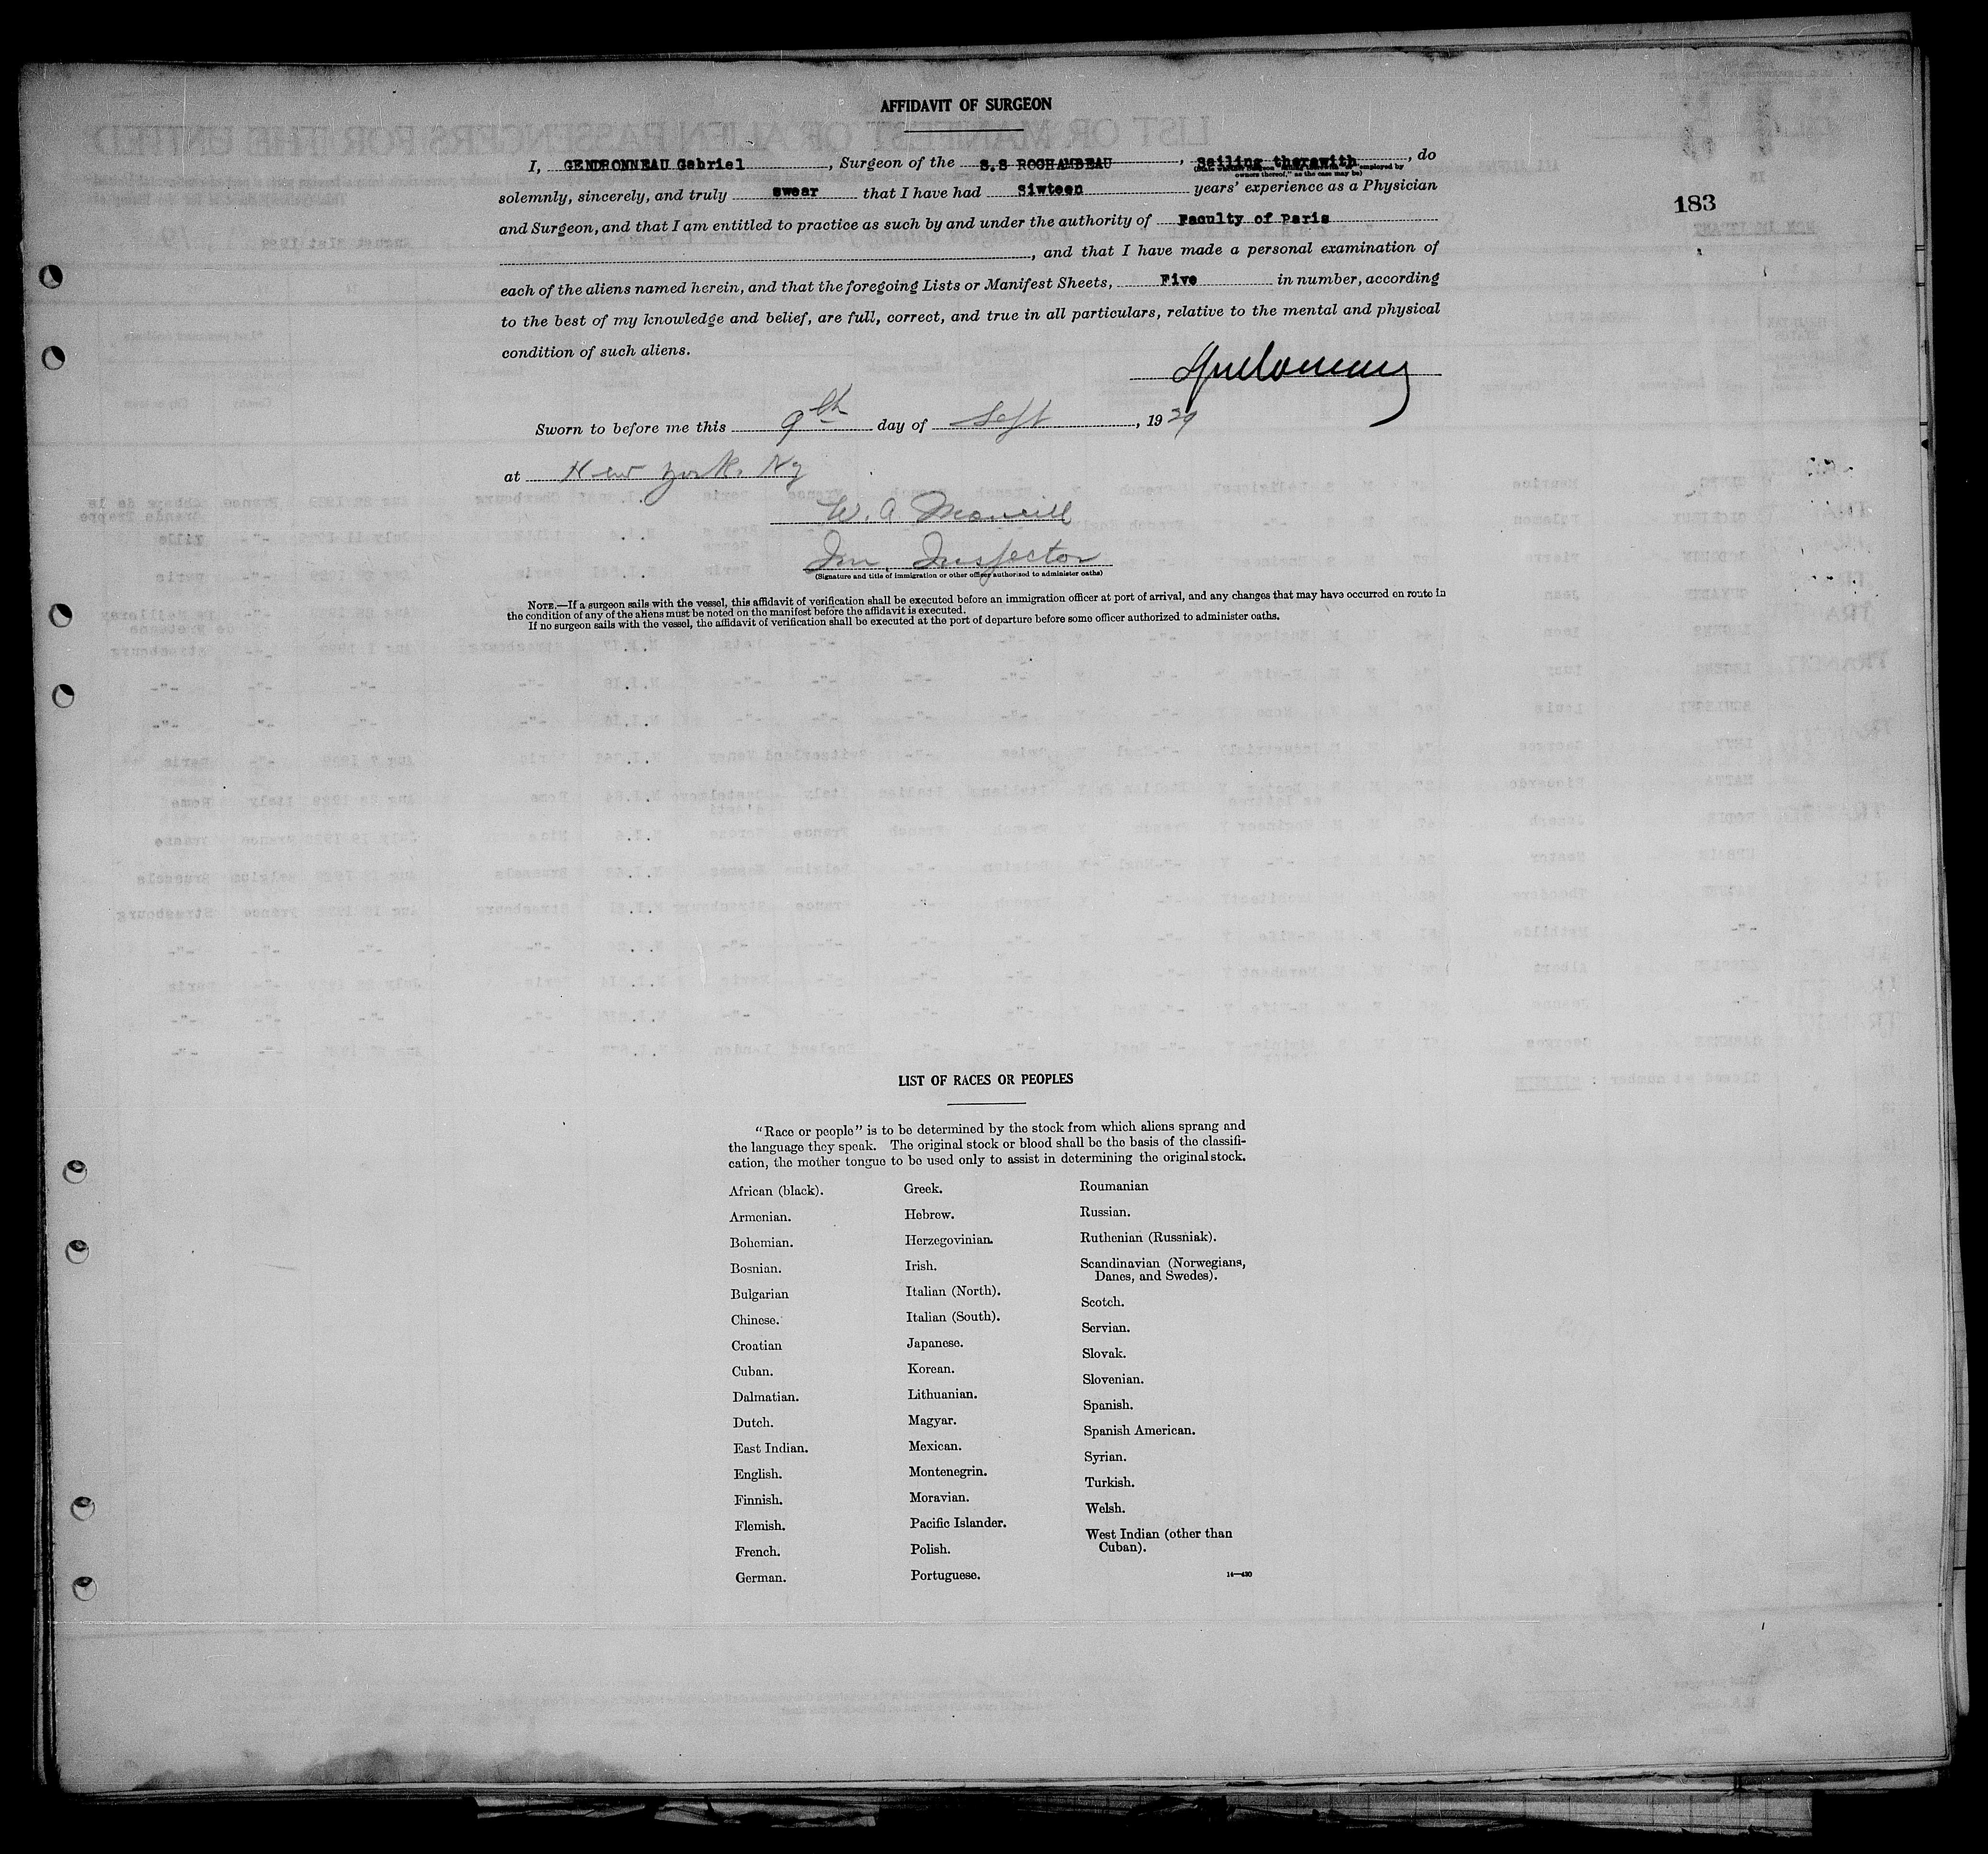 AFFIDAVIT OF SURGEON
I, GENDRONNEAU Gabriel, Surgeon of the S.S ROCHAMBEAU, Sailing therewith, do
owners thereof," as the case may be)
solemnly, sincerely, and truly swear that I have had Sixteen years' experience as a Physician
183
and Surgeon, and that I am entitled to practice as such by and under the authority of Faculty of Paris
, and that I have made a personal examination of
each of the aliens named herein, and that the foregoing Lists or Manifest Sheets, Five in number, according
to the best of my knowledge and belief, are full, correct, and true in all particulars, relative to the mental and physical
condition of such aliens.
Sworn to before me this 9th day of Sept, 1929
at New York. Ny
W. A.
Im. Inspector
(Signature and title of immigration or other officer authorized to administer oaths)
NOTE.—If a surgeon sails with the vessel, this affidavit of verification shall be executed before an immigration officer at port of arrival, and any changes that may have occurred en route in
the condition of any of the aliens must be noted on the manifest before the affidavit is executed.
If no surgeon sails with the vessel, the affidavit of verification shall be executed at the port of departure before some officer authorized to administer oaths.
LIST OF RACES OR PEOPLES
"Race or people" is to be determined by the stock from which aliens sprang and
the language they speak. The original stock or blood shall be the basis of the classifi-
cation, the mother tongue to be used only to assist in determining the original stock.
African (black).
Armenian.
Bohemian.
Bosnian.
Bulgarian
Chinese.
Croatian
Cuban.
Dalmatian.
Dutch.
East Indian.
English.
Finnish.
Flemish.
French.
German.
Greek.
Hebrew.
Herzegovinian.
Irish.
Italian (North).
Italian (South).
Japanese.
Korean.
Lithuanian.
Magyar.
Mexican.
Montenegrin.
Moravian.
Pacific Islander.
Polish.
Portuguese.
Roumanian
Russian.
Ruthenian (Russniak).
Scandinavian (Norwegians,
Danes, and Swedes).
Scotch.
Servian.
Slovak.
Slovenian.
Spanish.
Spanish American.
Syrian.
Turkish.
Welsh.
West Indian (other than
Cuban).
14—430